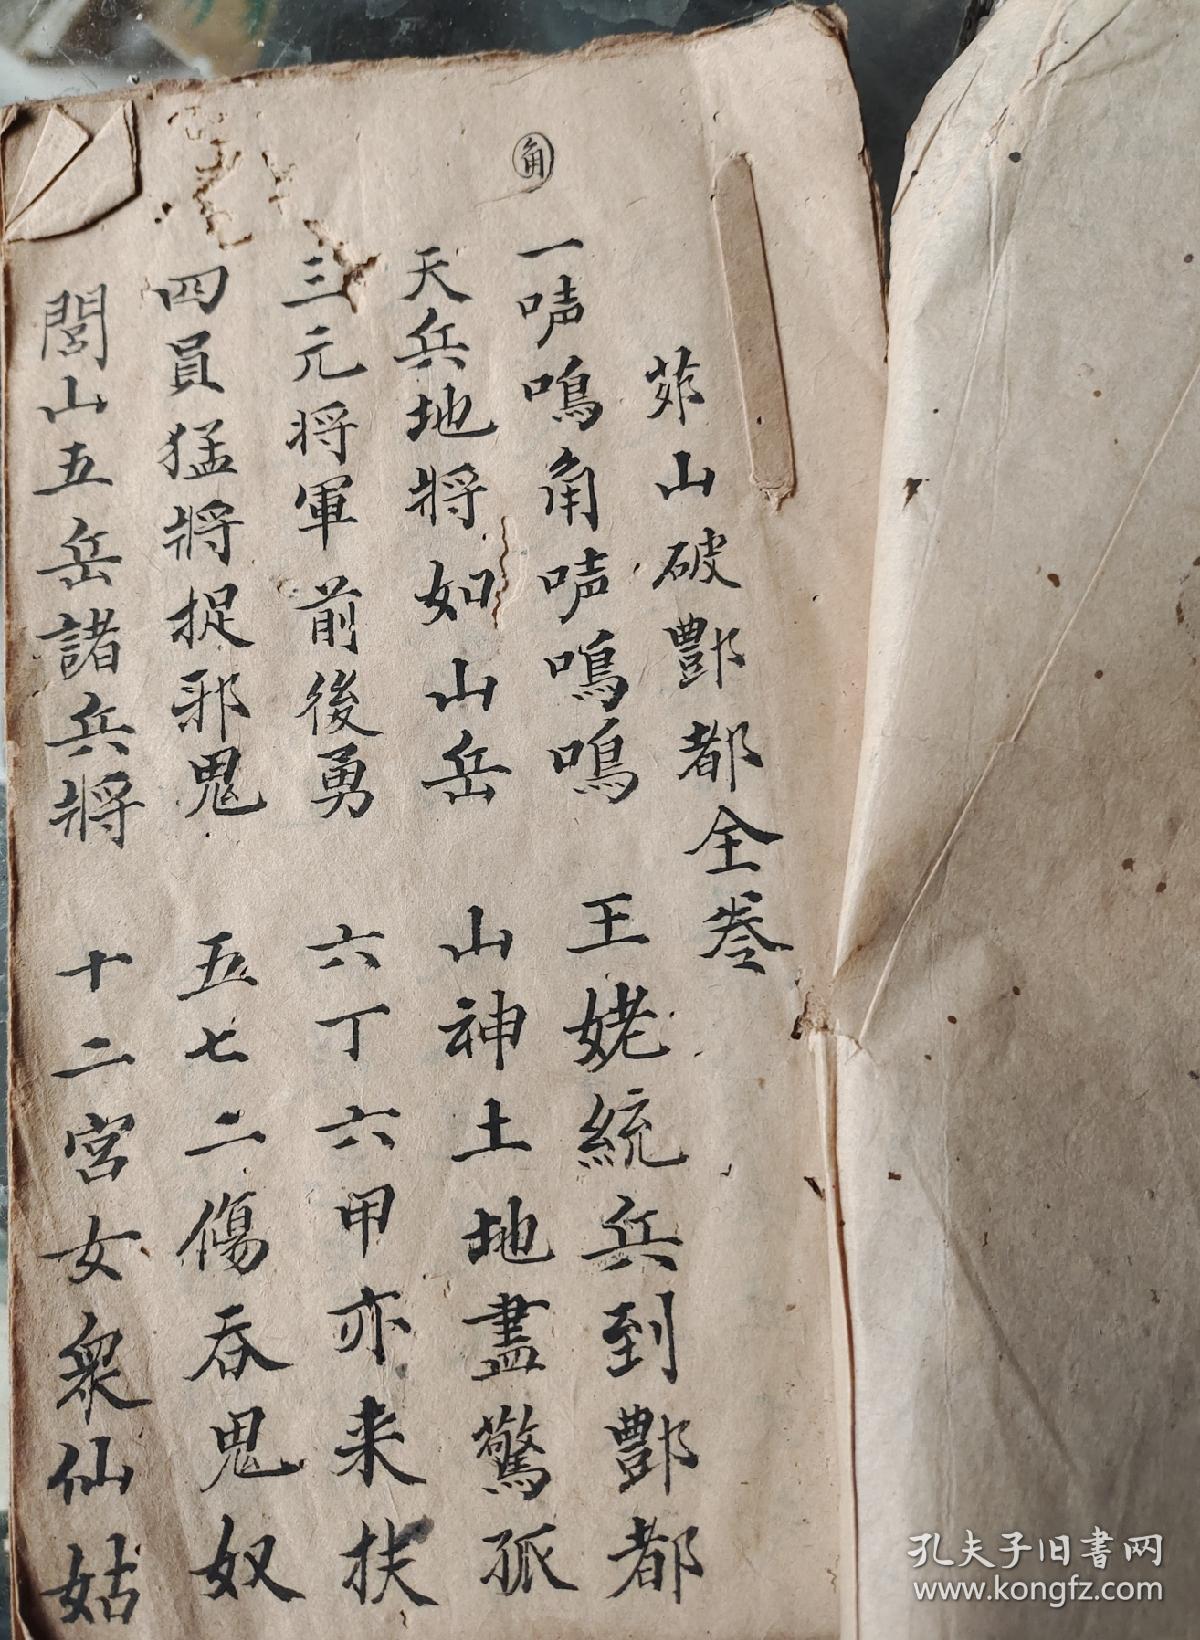 茆山破酆都全卷
角
一声鳴角声鳴鳴 王姥統兵到酆都
天兵地將如山岳 山神土地盡驚孤
三元将軍前後勇 六丁六甲亦来扶
四員猛將捉邪鬼 五七二傷吞鬼奴
閭山五岳諸兵將 十二宮女衆仙姑
孔夫子旧書网
www.kongfz.com